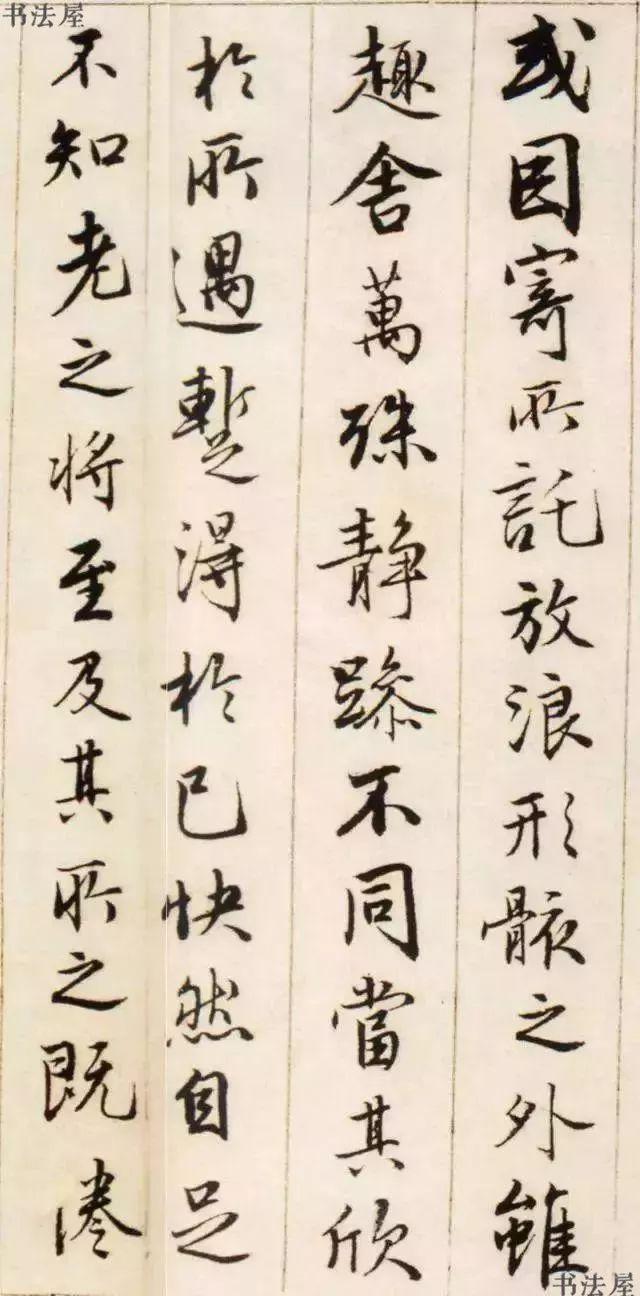 书法屋
或因寄所託放浪形骸之外雖
趣舍萬殊静躁不同當其欣
於所遇暫得於己快然自足
不知老之将至及其所之既惓
书法屋